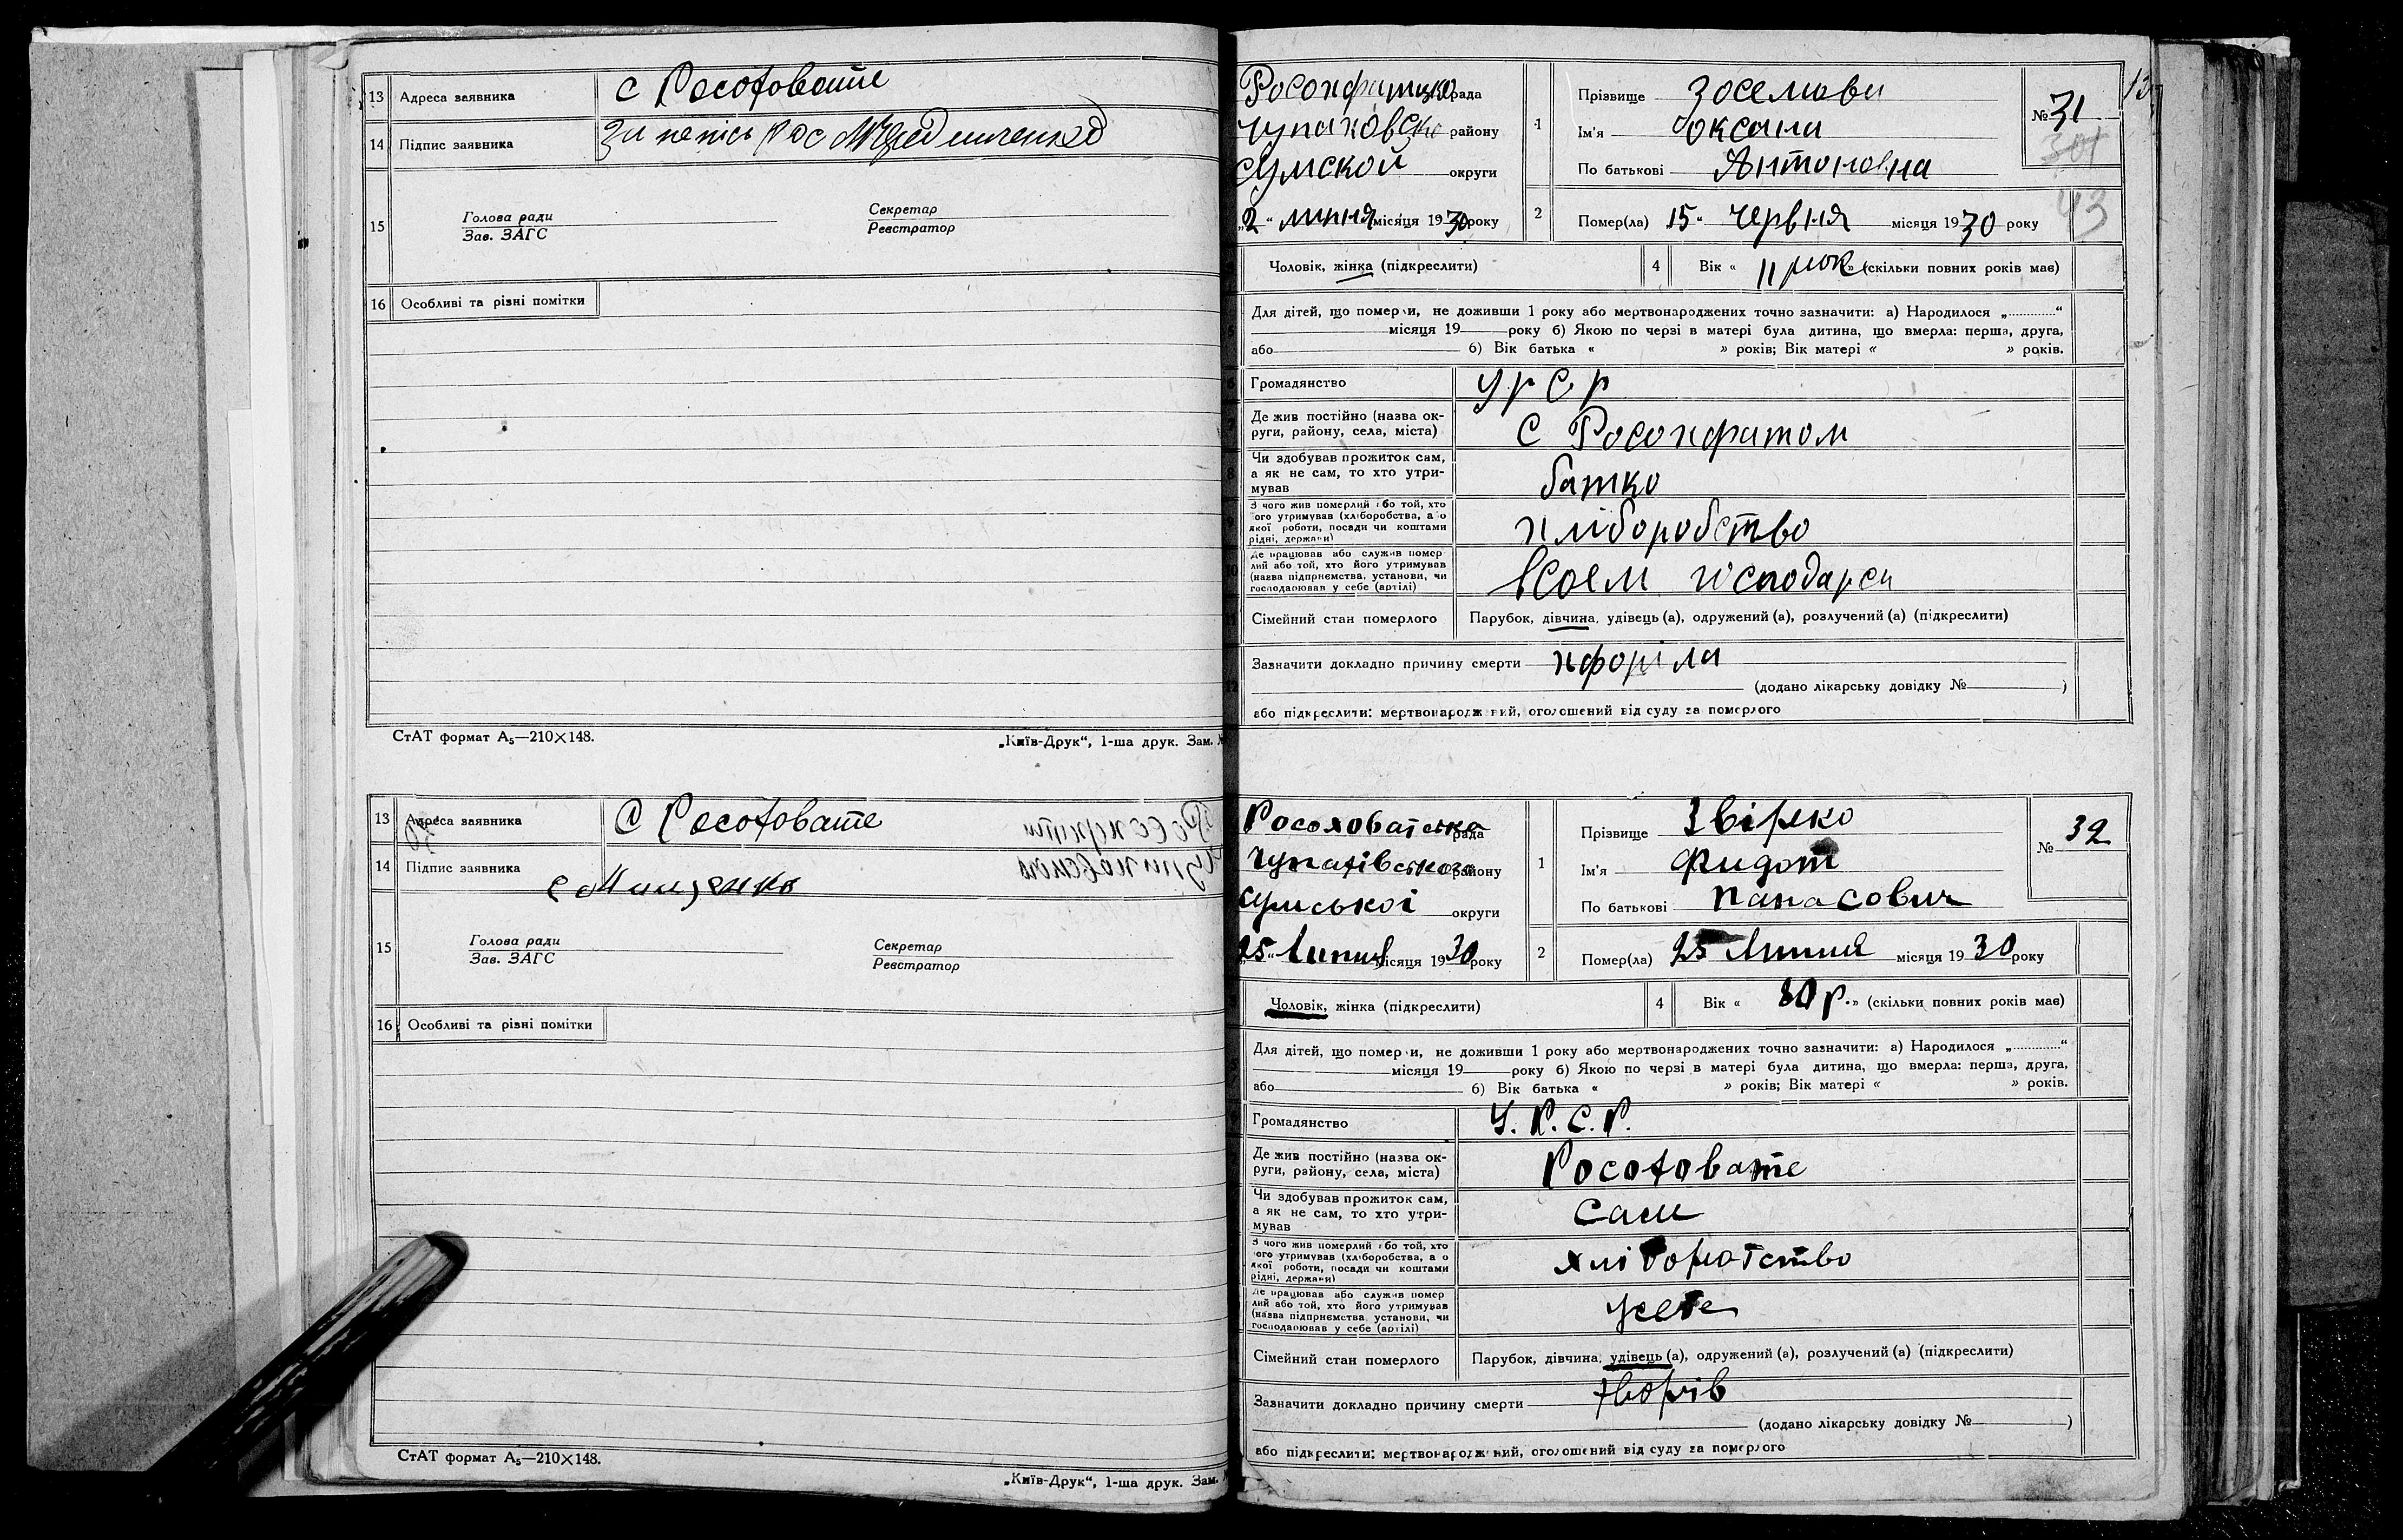 13 Адреса заявника с Росоховате
14 Підпис заявника
15 Голова ради Секретар
Зав. ЗАГС Реєстратор
16 Особливі та різні помітки
СтАТ формат А5—210×148.
„Київ-Друк“, 1-ша друк. Зам. №
13 Адреса заявника С Росоховате
14 Підпис заявника
15 Голова ради Секретар
Зав. ЗАГС Реєстратор
16 Особливі та різні помітки
СтАТ формат А5—210×148.
„Київ-Друк“, 1-ша друк. Зам.
рада
району
Сумской округи
„2“ липня місяця 1930 року
1 Прізвище
Ім'я Оксана
По батькові Антоновна
№ 31
301
43
2 Помер(ла) 15 “ червня місяця 1930 року
Чоловік, жінка (підкреслити)
4 Вік « 11 рок» (скільки повних років має)
Для дітей, що померли, не доживши 1 року або мертвонароджених точно зазначити: а) Народилося „ “
місяця 19 року б) Якою по черзі в матері була дитина, що вмерла: перша, друга,
або б) Вік батька « » років; Вік матері « » років.
Громадянство УРСР
Де жив постійно (назва ок-
руги, району, села, міста) с
Чи здобував прожиток сам,
а як не сам, то хто утри-
мував батко
З чого жив померлий або той, хто
його утримував (хліборобства, або
якої роботи, посади чи коштами
рідні, держави) хліборобство
Де працював або служив помер
лий або той, хто його утримував
(назва підприємства, установи, чи
господарював у себе (артілі) всоем господарси
Сімейний стан померлого Парубок, дівчина, удівець (а), одружений (а), розлучений (а) (підкреслити)
Зазначити докладно причину смерти хворіла
(додано лікарську довідку № )
або підкреслити: мертвонароджений, оголошений від суду за померлого
Росоховатська рада
Чупахівського району
Сумської округи
„25“ Липня місяця 1930 року
1 Прізвище Звірко
Ім'я Фидот
По батькові Панасович
№ 32
2 Помер(ла) 25 Липня місяця 1930 року
Чоловік, жінка (підкреслити)
4 Вік « 80 р.» (скільки повних років має)
Для дітей, що померли, не доживши 1 року або мертвонароджених точно зазначити: а) Народилося „ “
місяця 19 року б) Якою по черзі в матері була дитина, що вмерла: перша, друга,
або б) Вік батька « » років; Вік матері « » років.
Громадянство У.Р.С.Р.
Де жив постійно (назва ок-
руги, району, села, міста) Росоховате
Чи здобував прожиток сам,
а як не сам, то хто утри-
мував Сам
З чого жив померлий або той, хто
його утримував (хліборобства, або
якої роботи, посади чи коштами
рідні, держави)
Де працював або служив помер
лий або той, хто його утримував
(назва підприємства, установи, чи
господарював у себе (артілі) усебе
Сімейний стан померлого Парубок, дівчина, удівець (а), одружений (а), розлучений (а) (підкреслити)
Зазначити докладно причину смерти хворів
(додано лікарську довідку № )
або підкреслити: мертвонароджений, оголошений від суду за померлого